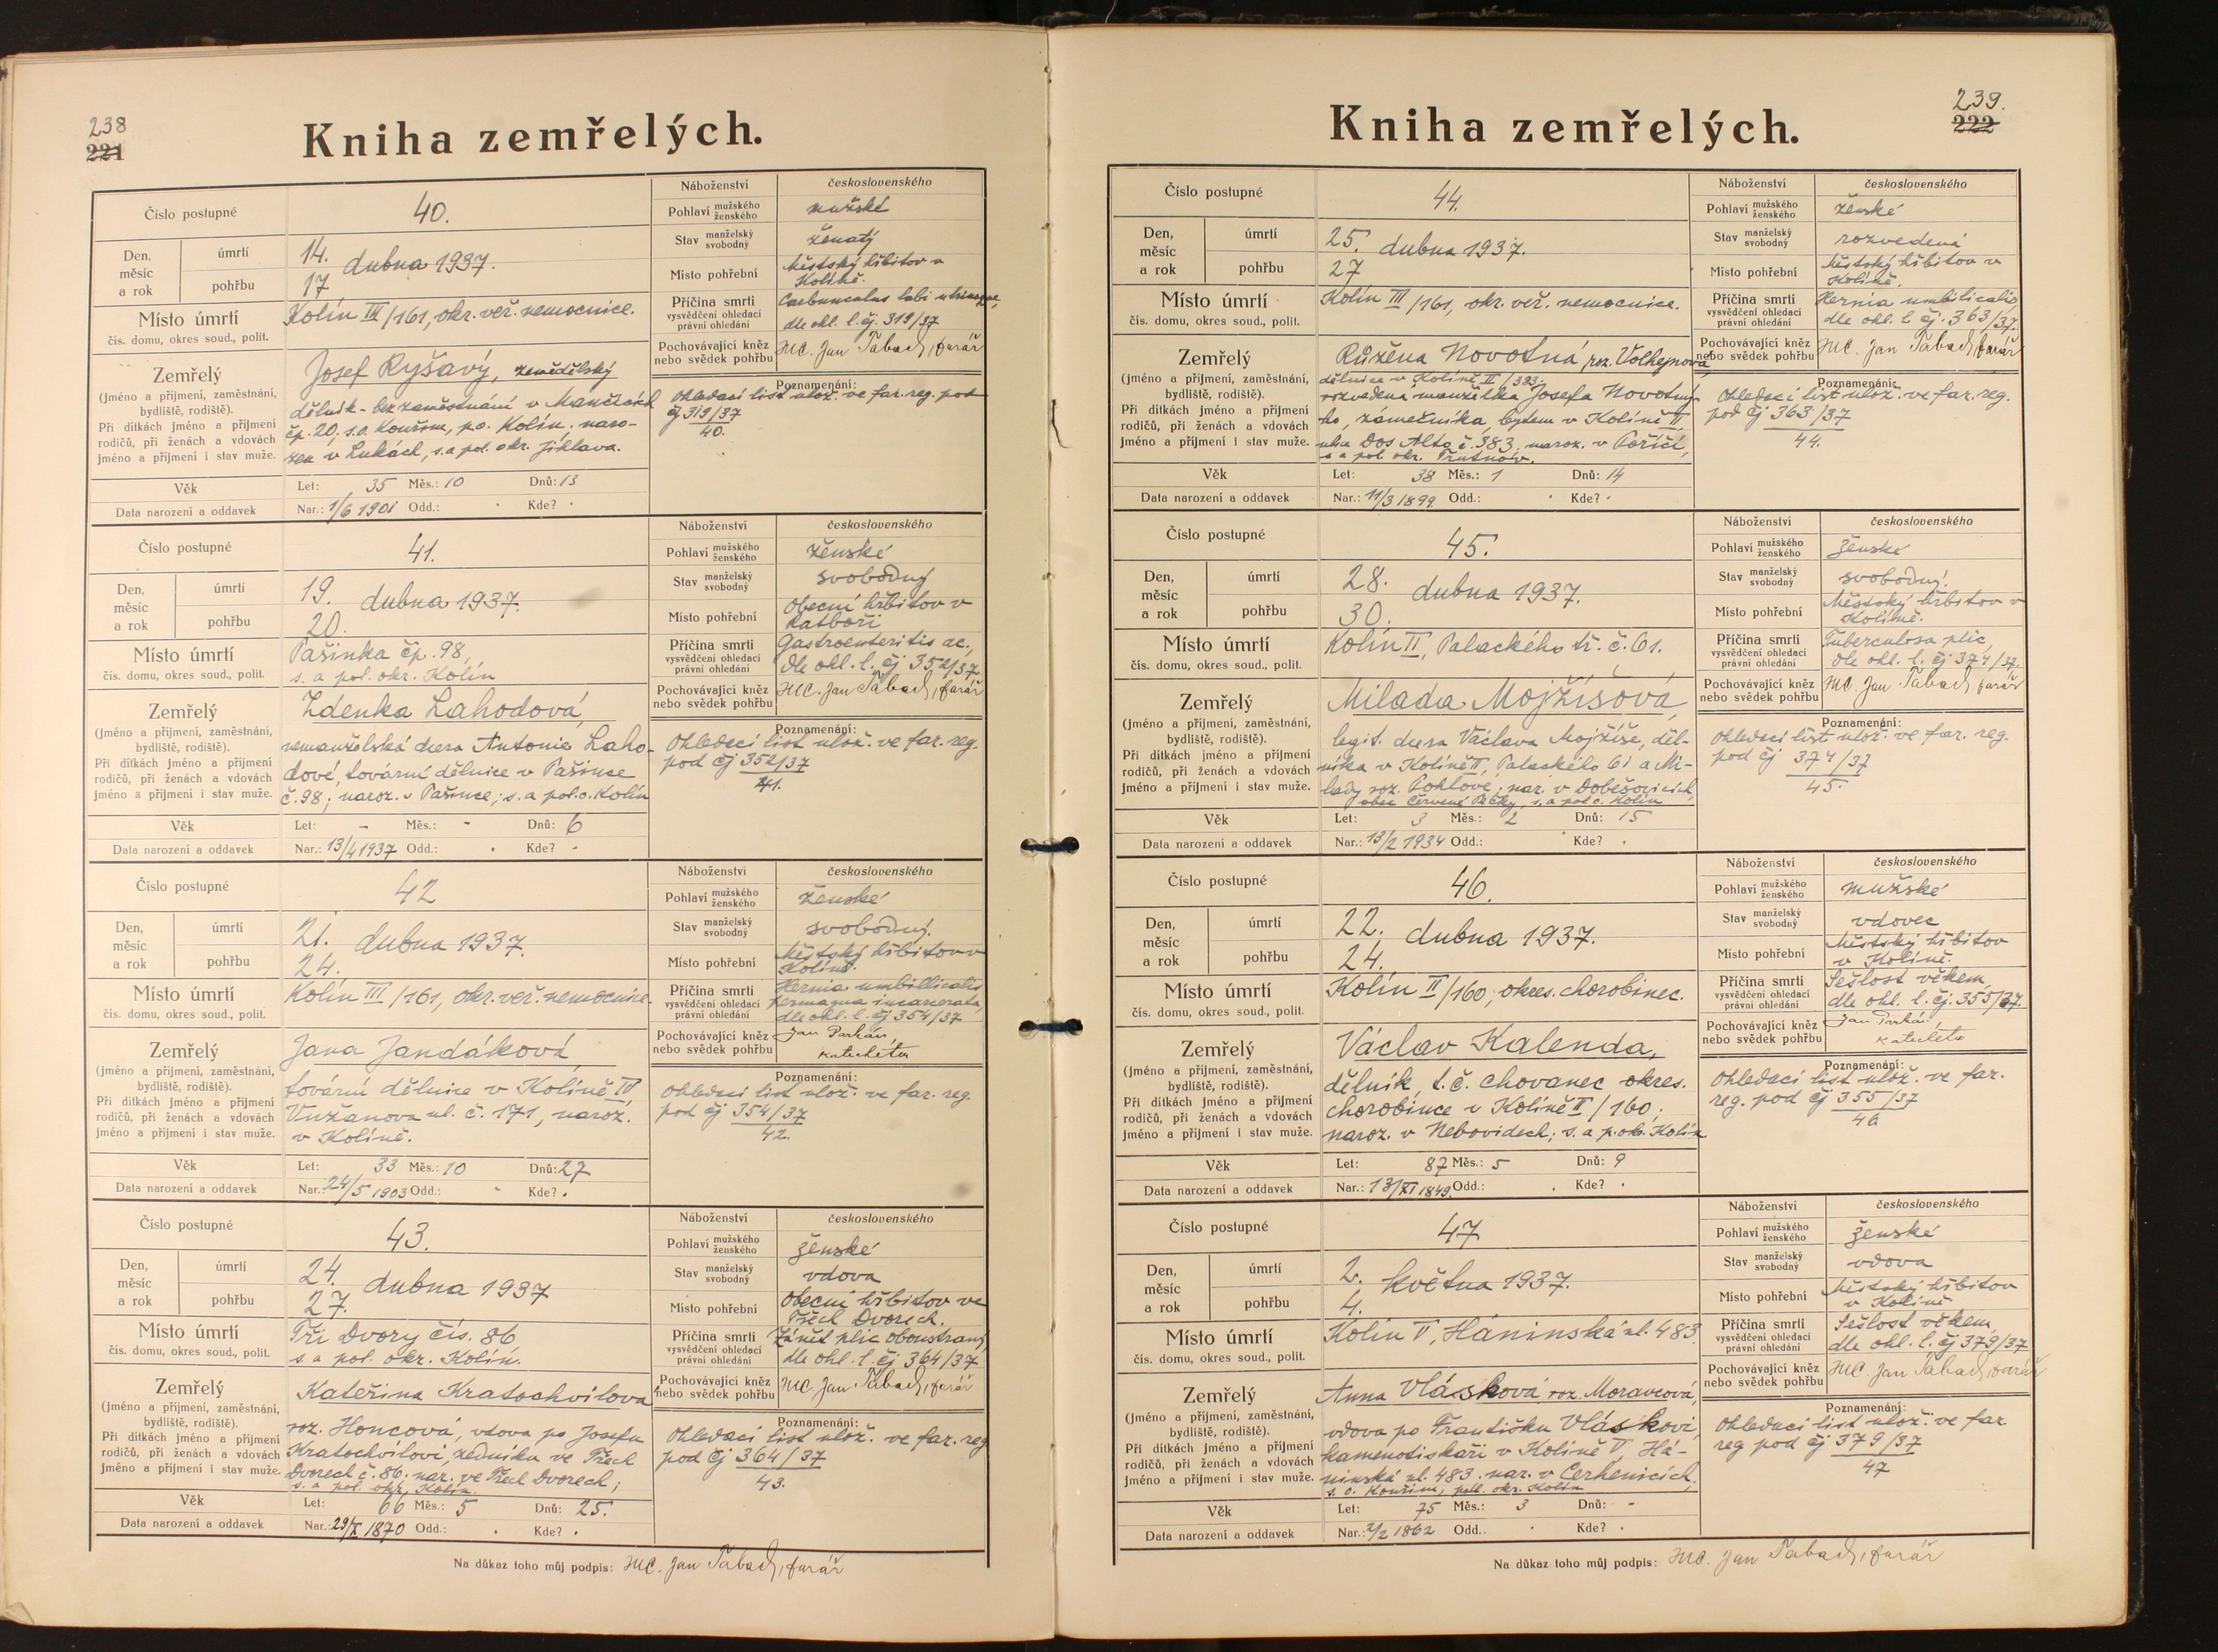 238
221
Kniha zemřelých.
Číslo postupné 40.
Náboženství československého
Pohlaví mužského ženského mužské
Stav manželský svobodný ženatý
Den, měsíc a rok úmrtí 14. dubna 1937.
pohřbu 17
Místo pohřební Městský hřbitov v
Kolíně.
Místo úmrtí Kolín III/161, okr. veř. nemocnice.
čís. domu, okres soud., polit.
Příčina smrti Carbunculus labi
vysvědčení ohledací
právní ohledání dle ohl. l. čj. 319/37
Pochovávající kněz
nebo svědek pohřbu Jan Tabach, farář
Zemřelý Josef Ryšavý, zemědělský
(jméno a příjmení, zaměstnání, bydliště, rodiště).
Při dítkách jméno a příjmení rodičů, při ženách a vdovách jméno a příjmení i stav muže.
dělník - bez zaměstnání v
čp. 20, s.o. Kouřim, p.o. Kolín, naro-
zen v Lukách, s. a pol. okr. Jihlava.
Poznamenání:
Ohledací list ulož. ve far. reg. pod
čj 319/37
40.
Věk Let: 35 Měs.: 10 Dnů: 13
Data narození a oddavek Nar.: 1/6 1901 Odd.: Kde?
Číslo postupné 41.
Náboženství československého
Pohlaví mužského ženského ženské
Stav manželský svobodný svobodný
Den, měsíc a rok úmrtí 19. dubna 1937.
pohřbu 20.
Místo pohřební Obecní hřbitov v
Ratboři
Místo úmrtí Pašinka čp. 98,
čís. domu, okres soud., polit. s. a pol. okr. Kolín
Příčina smrti Gastroenteritis ac.,
vysvědčení ohledací
právní ohledání dle ohl. l. čj 352/37
Pochovávající kněz
nebo svědek pohřbu Jan Tabach, farář
Zemřelý Zdenka Lahodová,
(jméno a příjmení, zaměstnání, bydliště, rodiště).
Při dítkách jméno a příjmení rodičů, při ženách a vdovách jméno a příjmení i stav muže.
nemanželská dcera Antonie Laho-
dové, tovární dělnice v Pašince
č. 98; naroz. v Pašince; s. a pol. o. Kolín
Poznamenání:
Ohledací list ulož. ve far. reg.
pod čj 352/37
41.
Věk Let: - Měs.: - Dnů: 6
Data narození a oddavek Nar.: 13/4 1937 Odd.: Kde?
Číslo postupné 42
Náboženství československého
Pohlaví mužského ženského ženské
Stav manželský svobodný svobodný.
Den, měsíc a rok úmrtí 21. dubna 1937.
pohřbu 24.
Místo pohřební Městský hřbitov v
Kolíně.
Místo úmrtí Kolín III/161, okr. veř. nemocnice.
čís. domu, okres soud., polit.
Příčina smrti Hernia umbillicalis
vysvědčení ohledací permagna incarcerata,
právní ohledání dle ohl. l. čj 354/37
Pochovávající kněz Jan
nebo svědek pohřbu katecheta
Zemřelý Jana Jandáková,
(jméno a příjmení, zaměstnání, bydliště, rodiště).
Při dítkách jméno a příjmení rodičů, při ženách a vdovách jméno a příjmení i stav muže.
tovární dělnice v Kolíně IV,
Vužanova ul. č. 171, naroz.
v Kolíně.
Poznamenání:
Ohledací list ulož. ve far. reg.
pod čj 354/37
42.
Věk Let: 33 Měs.: 10 Dnů: 27
Data narození a oddavek Nar.: 24/5 1903 Odd.: Kde?
Číslo postupné 43.
Náboženství československého
Pohlaví mužského ženského ženské
Stav manželský svobodný vdova
Den, měsíc a rok úmrtí 24. dubna 1937
pohřbu 27.
Místo pohřební Obecní hřbitov ve
Třech Dvorech.
Místo úmrtí Tři Dvory čís. 86
čís. domu, okres soud., polit. s. a pol. okr. Kolín.
Příčina smrti Zánět plic oboustranný,
vysvědčení ohledací
právní ohledání dle ohl. l. čj 364/37
Pochovávající kněz
nebo svědek pohřbu Jan Tabach, farář
Zemřelý Kateřina Kratochvílová
(jméno a příjmení, zaměstnání, bydliště, rodiště).
Při dítkách jméno a příjmení rodičů, při ženách a vdovách jméno a příjmení i stav muže.
roz. Honcová, vdova po Josefu
Kratochvílovi, zedníku ve Třech
Dvorech č. 86. nar. ve Třech Dvorech;
s. a pol. okr. Kolín.
Poznamenání:
Ohledací list ulož. ve far. reg
pod čj 364/37
43.
Věk Let: 66 Měs.: 5 Dnů: 25.
Data narození a oddavek Nar.: 29/X 1870 Odd.: Kde?
Na důkaz toho můj podpis: Jan Tabach, farář
239.
222
Kniha zemřelých.
Číslo postupné 44.
Náboženství československého
Pohlaví mužského ženského ženské
Stav manželský svobodný rozvedená
Den, měsíc a rok úmrtí 25. dubna 1937.
pohřbu 27
Místo pohřební Městský hřbitov v
Kolíně.
Místo úmrtí Kolín III/161, okr. veř. nemocnice.
čís. domu, okres soud., polit.
Příčina smrti Hernia umbilicalis
vysvědčení ohledací
právní ohledání dle ohl. l. čj. 363/37.
Pochovávající kněz
nebo svědek pohřbu Jan Tabach, farář
Zemřelý Růžena Novotná, roz. Volhejnová
(jméno a příjmení, zaměstnání, bydliště, rodiště).
Při dítkách jméno a příjmení rodičů, při ženách a vdovách jméno a příjmení i stav muže.
dělnice v Kolíně II/383,
rozvedená manželka Josefa Novotné-
ho, zámečníka, bytem v Kolíně II,
ulice Dos Alto č. 383, naroz. v Poříčí,
s. a pol. okr. Trutnov.
Poznamenání:
Ohledací list ulož. ve far. reg.
pod čj 363/37
44.
Věk Let: 38 Měs.: 1 Dnů: 14
Data narození a oddavek Nar.: 11/3 1899 Odd.: Kde?
Číslo postupné 45.
Náboženství československého
Pohlaví mužského ženského ženské
Stav manželský svobodný svobodný.
Den, měsíc a rok úmrtí 28. dubna 1937.
pohřbu 30.
Místo pohřební Městský hřbitov v
Kolíně.
Místo úmrtí Kolín II, Palackého tř. č. 61.
čís. domu, okres soud., polit.
Příčina smrti Tuberculosa plic,
vysvědčení ohledací
právní ohledání dle ohl. l. čj 374/37.
Pochovávající kněz
nebo svědek pohřbu Jan Tabach, farář
Zemřelý Milada Mojžíšová,
(jméno a příjmení, zaměstnání, bydliště, rodiště).
Při dítkách jméno a příjmení rodičů, při ženách a vdovách jméno a příjmení i stav muže.
legit. dcera Václava Mojžíše, děl-
níka v Kolíně II, Palackého 61 a Mi-
lady roz. nar. v Dobešovicích,
obec Červené Pečky, s. a pol. o. Kolín
Poznamenání:
Ohledací list ulož. ve far. reg.
pod čj 374/37
45.
Věk Let: 3 Měs.: 2 Dnů: 15
Data narození a oddavek Nar.: 13/2 1934 Odd.: Kde?
Číslo postupné 46.
Náboženství československého
Pohlaví mužského ženského mužské
Stav manželský svobodný vdovec
Den, měsíc a rok úmrtí 22. dubna 1937.
pohřbu 24.
Místo pohřební Městský hřbitov
v Kolíně.
Místo úmrtí Kolín II/160, okres. chorobinec.
čís. domu, okres soud., polit.
Příčina smrti Sešlost věkem,
vysvědčení ohledací
právní ohledání dle ohl. l. čj. 355/37.
Pochovávající kněz Jan
nebo svědek pohřbu katecheta
Zemřelý Václav Kalenda,
(jméno a příjmení, zaměstnání, bydliště, rodiště).
Při dítkách jméno a příjmení rodičů, při ženách a vdovách jméno a příjmení i stav muže.
dělník, t. č. chovanec okres.
chorobince v Kolíně II/160;
naroz. v Nebovidech; s. a p. ok. Kolín
Poznamenání:
Ohledací list ulož. ve far.
reg. pod čj 355/37
46
Věk Let: 87 Měs.: 5 Dnů: 9
Data narození a oddavek Nar.: 13/XI 1849. Odd.: Kde?
Číslo postupné 47
Náboženství československého
Pohlaví mužského ženského ženské
Stav manželský svobodný vdova
Den, měsíc a rok úmrtí 2. května 1937.
pohřbu 4.
Místo pohřební Městský hřbitov
v Kolíně
Místo úmrtí Kolín V,Háninská ul. 483
čís. domu, okres soud., polit.
Příčina smrti Sešlost věkem,
vysvědčení ohledací
právní ohledání dle ohl. l. čj 379/37
Pochovávající kněz
nebo svědek pohřbu Jan Tabach, farář
Zemřelý Anna Vlásková, roz. Moravcová,
(jméno a příjmení, zaměstnání, bydliště, rodiště).
Při dítkách jméno a příjmení rodičů, při ženách a vdovách jméno a příjmení i stav muže.
vdova po Františku Vláskovi,
kamenotiskaři v Kolíně V, Há-
ninská ul. 483. nar. v Cerhenicích,
s. o. Kouřim, pol. okr. Kolín
Poznamenání:
Ohledací list ulož. ve far
reg pod čj 379/37
47
Věk Let: 75 Měs.: 3 Dnů: -
Data narození a oddavek Nar.: 2/2 1862 Odd.: Kde?
Na důkaz toho můj podpis: Jan Tabach, farář